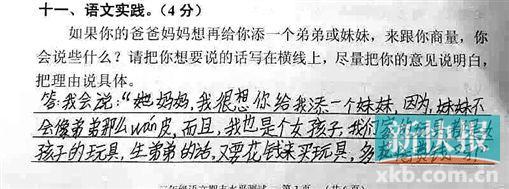 十一、语文实践。(4分)
如果你的爸爸妈妈想再给你添一个弟弟或妹妹，来跟你商量，你
会说些什么？请把你想要说的话写在横线上，尽量把你的意见说明白，
把理由说具体。
答:我会说："妈妈,我很想你给我添一个妹妹,因为,妹妹不
会像弟弟那么wán皮,而且,我也是个女孩子,我们家的玩具都是女
孩子的玩具,生弟弟的话,又要花钱来买玩具,多
新快报
xkb.com.cn